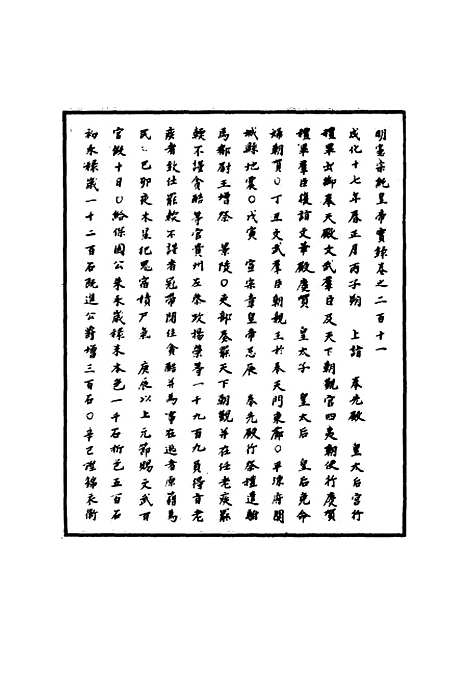 明憲宗純皇帝實錄卷之二百十一
成化十七年春正月丙子朔　上詣　奉先殿　皇太后宮行
禮畢出御奉天殿文武羣臣及天下朝覲官四夷朝使行慶賀
禮畢羣臣復詣文華殿慶賀　皇太子　皇太后　皇后免命
婦朝賀○丁丑文武羣臣朝親王於奉天門東廊○平凉府開
城縣地震○戊寅　宣宗章皇帝忌辰　奉先殿行祭禮遣駙
馬都尉王增祭　景陵○吏部奏嚴天下朝覲并在任老疾罷
輭不謹貪酷等官貴州左叅政楊榮等一千九百九員得旨老
疾者致仕罷輭不謹者冠帶閒住貪酷并為事在逃者原籍為
民○己卯夜木星犯鬼宿積尸氣　庚辰以上元節賜文武百
官假十日○給保國公朱永歲祿米本色一千石折色五百石
初永祿歲一十二百石既進公爵增三百石○辛巳陞錦衣衛